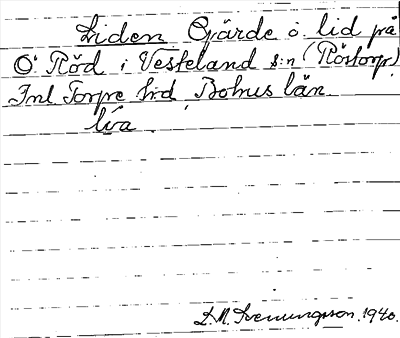 Liden Gjärde o lid på
Ö. Röd i Veskeland s:n (Röstorp)
Inl Torpe hd Bohus län
lia.
D.M. Svenungsson. 1940.